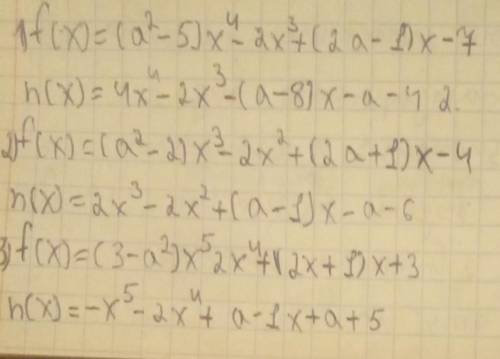 1) f(x) = (a² - 5)x⁴ - 2x³ + (2a - 1)x - 7
h(x) = 4x⁴ - 2x³ - (a - 8)x - a - 4 2.
2) f(x) = (a² - 2)x³ - 2x² + (2a + 1)x - 4
h(x) = 2x³ - 2x² + (a - 1)x - a - 6
3) f(x) = (3 - a²)x⁵ 2x⁴ + (2x + 1)x + 3
h(x) = -x⁵ - 2x⁴ + a - 1x + a + 5